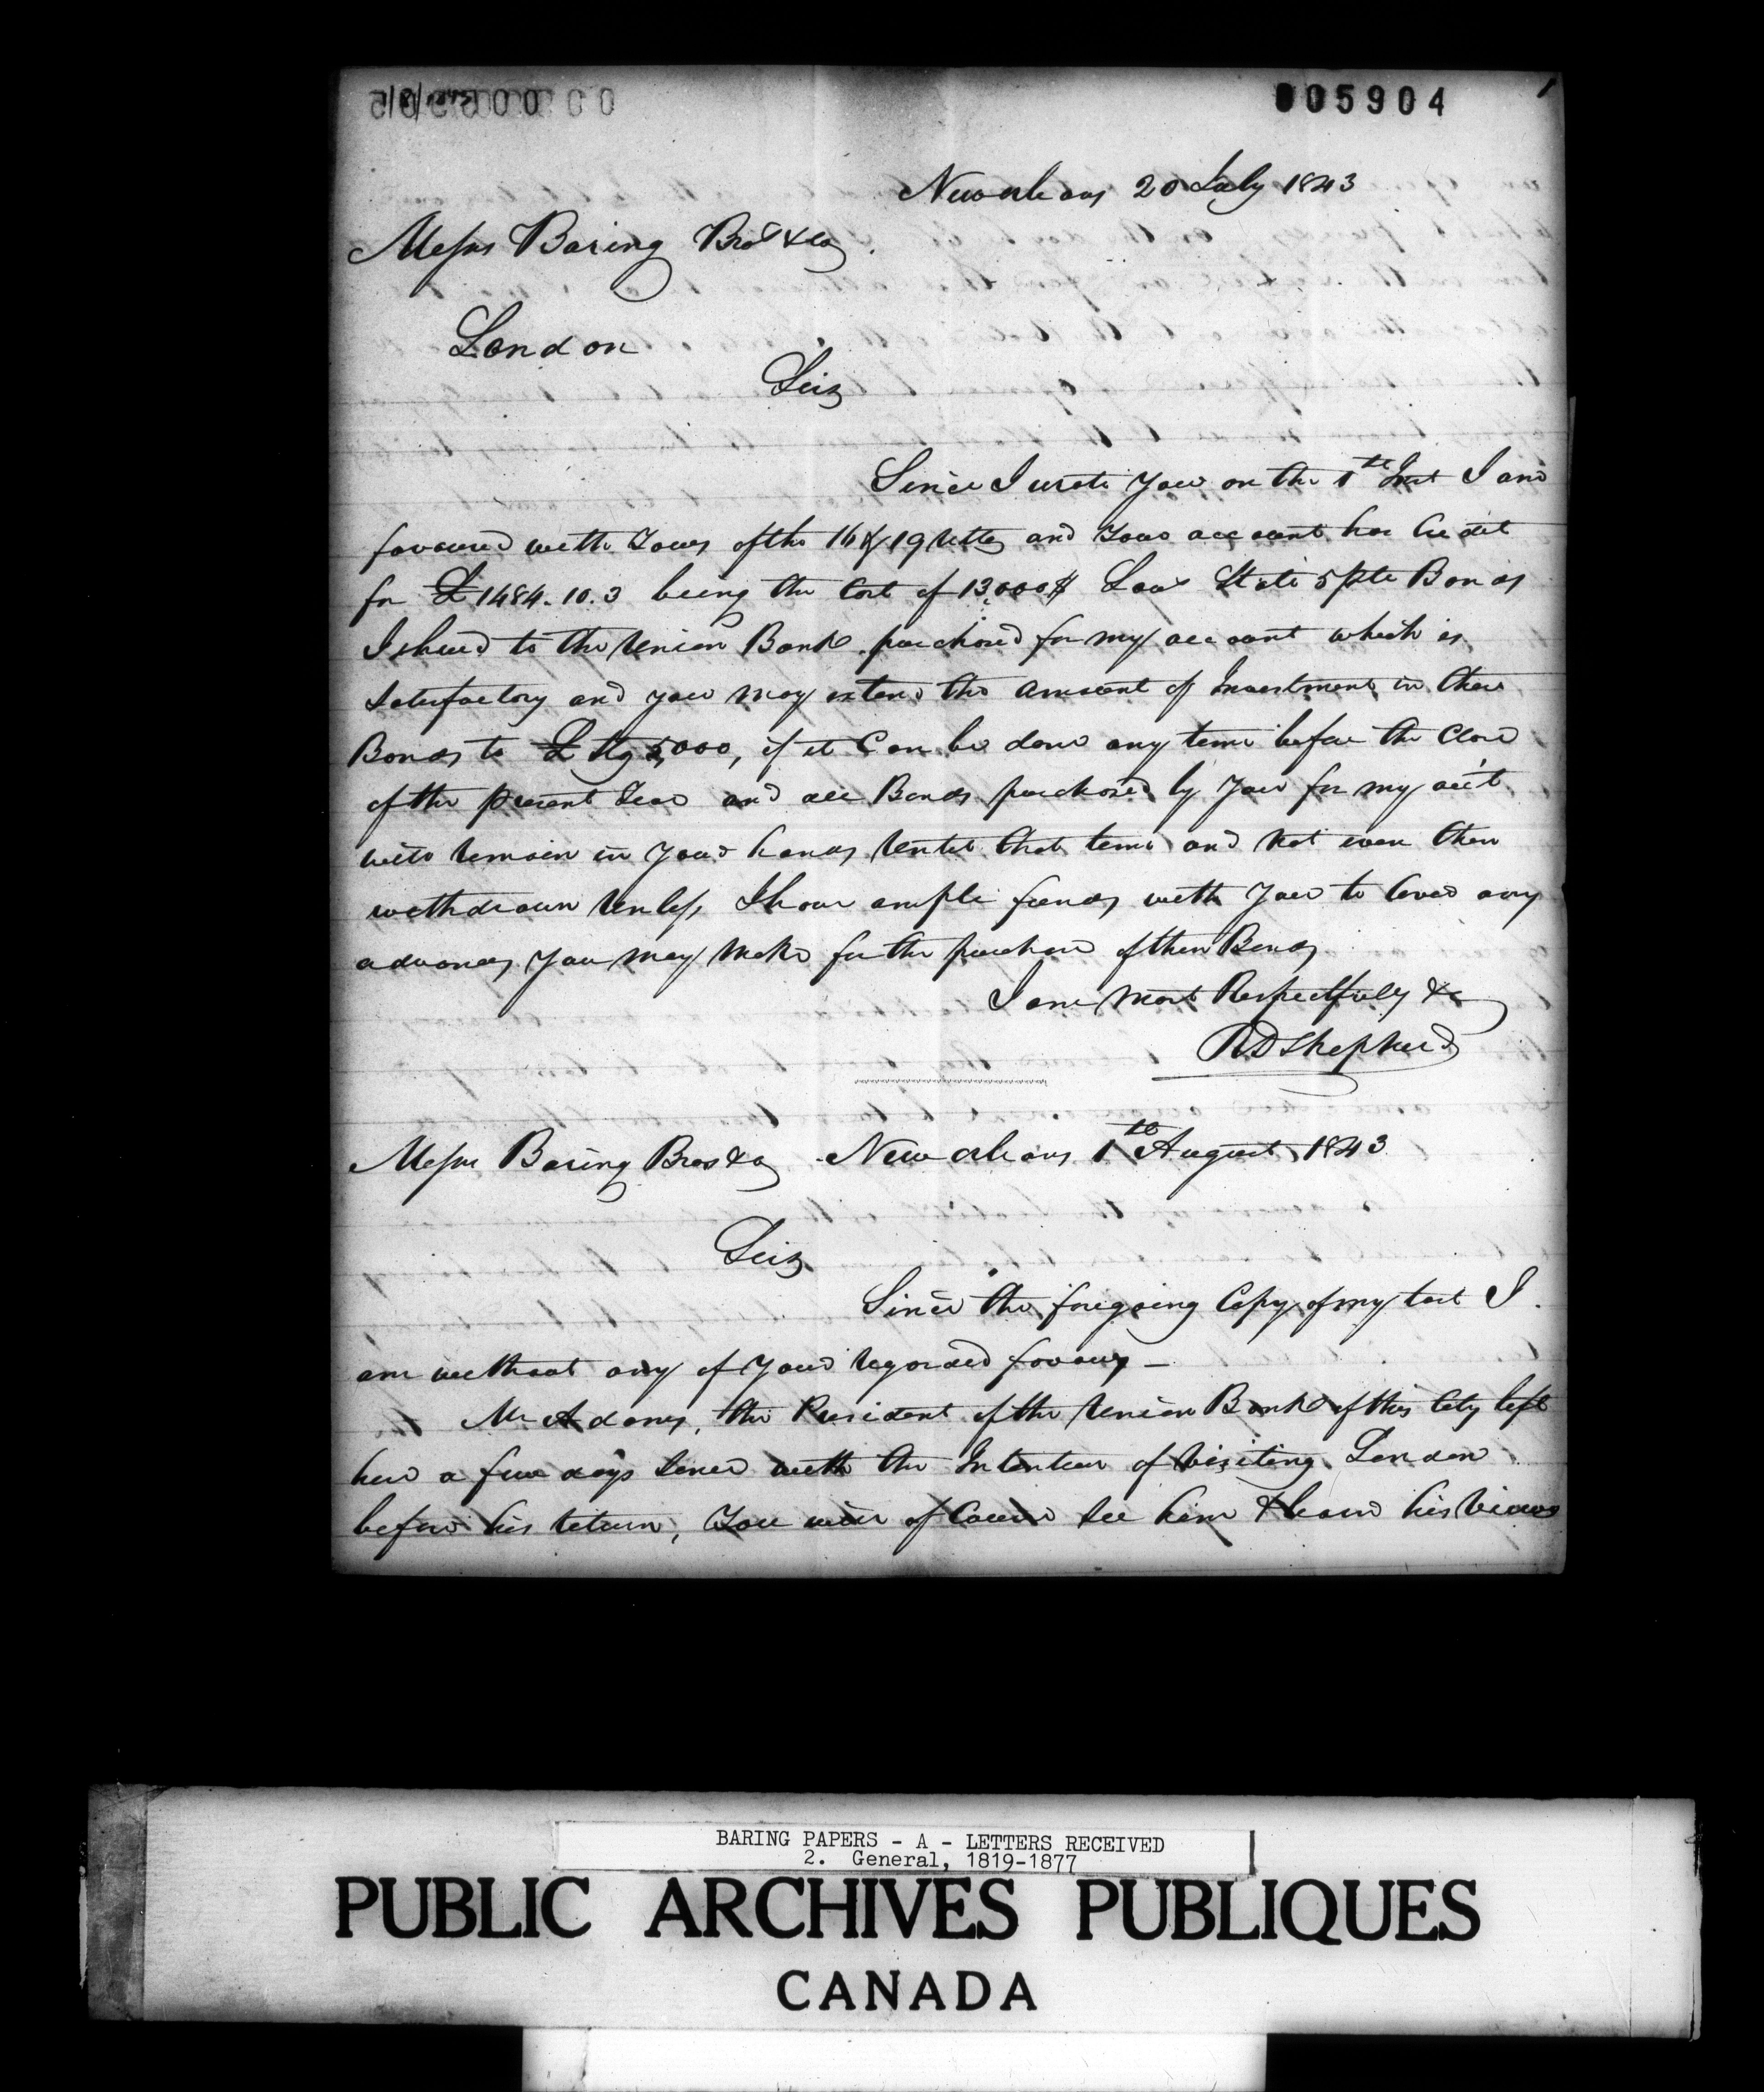 005904
New Orleans 20 July 1843
Messrs Baring Bros & Co
London
Sirs
Since I wrote you on the 1th Inst I am
favoured with Yours of the 16 & 19 Ulto and your account has Credit
for £1484.10.3 being the Cost of 13,000$ Loua State 5 pCt Bonds
Issued to the Union Bank purchased for my account which is
Satisfactory and you may extend the amount of Investment in these
Bonds to £ Stg 5,000, if it Can be done any time before the Close
of the present Year and all Bonds purchased by You for my acct
will remain in your hands Until that time and not even then
withdrawn Unless I have ample funds with You to Cover any
advances You may make for the purchase of these Bonds
I am most Respectfully &c
RD Shepherd
Messrs Baring Bros & Co New Orleans 1th August 1843
Sirs
Since the foregoing Copy of my last I
am without any of Your regarded favours —
Mr Adams, the President of the Union Bank of this City left
here a few days Since with the Intention of Visiting London
before his return, You will of Course See him & learn his Views
BARING PAPERS - A - LETTERS RECEIVED
2. General, 1819-1877
PUBLIC ARCHIVES PUBLIQUES
CANADA